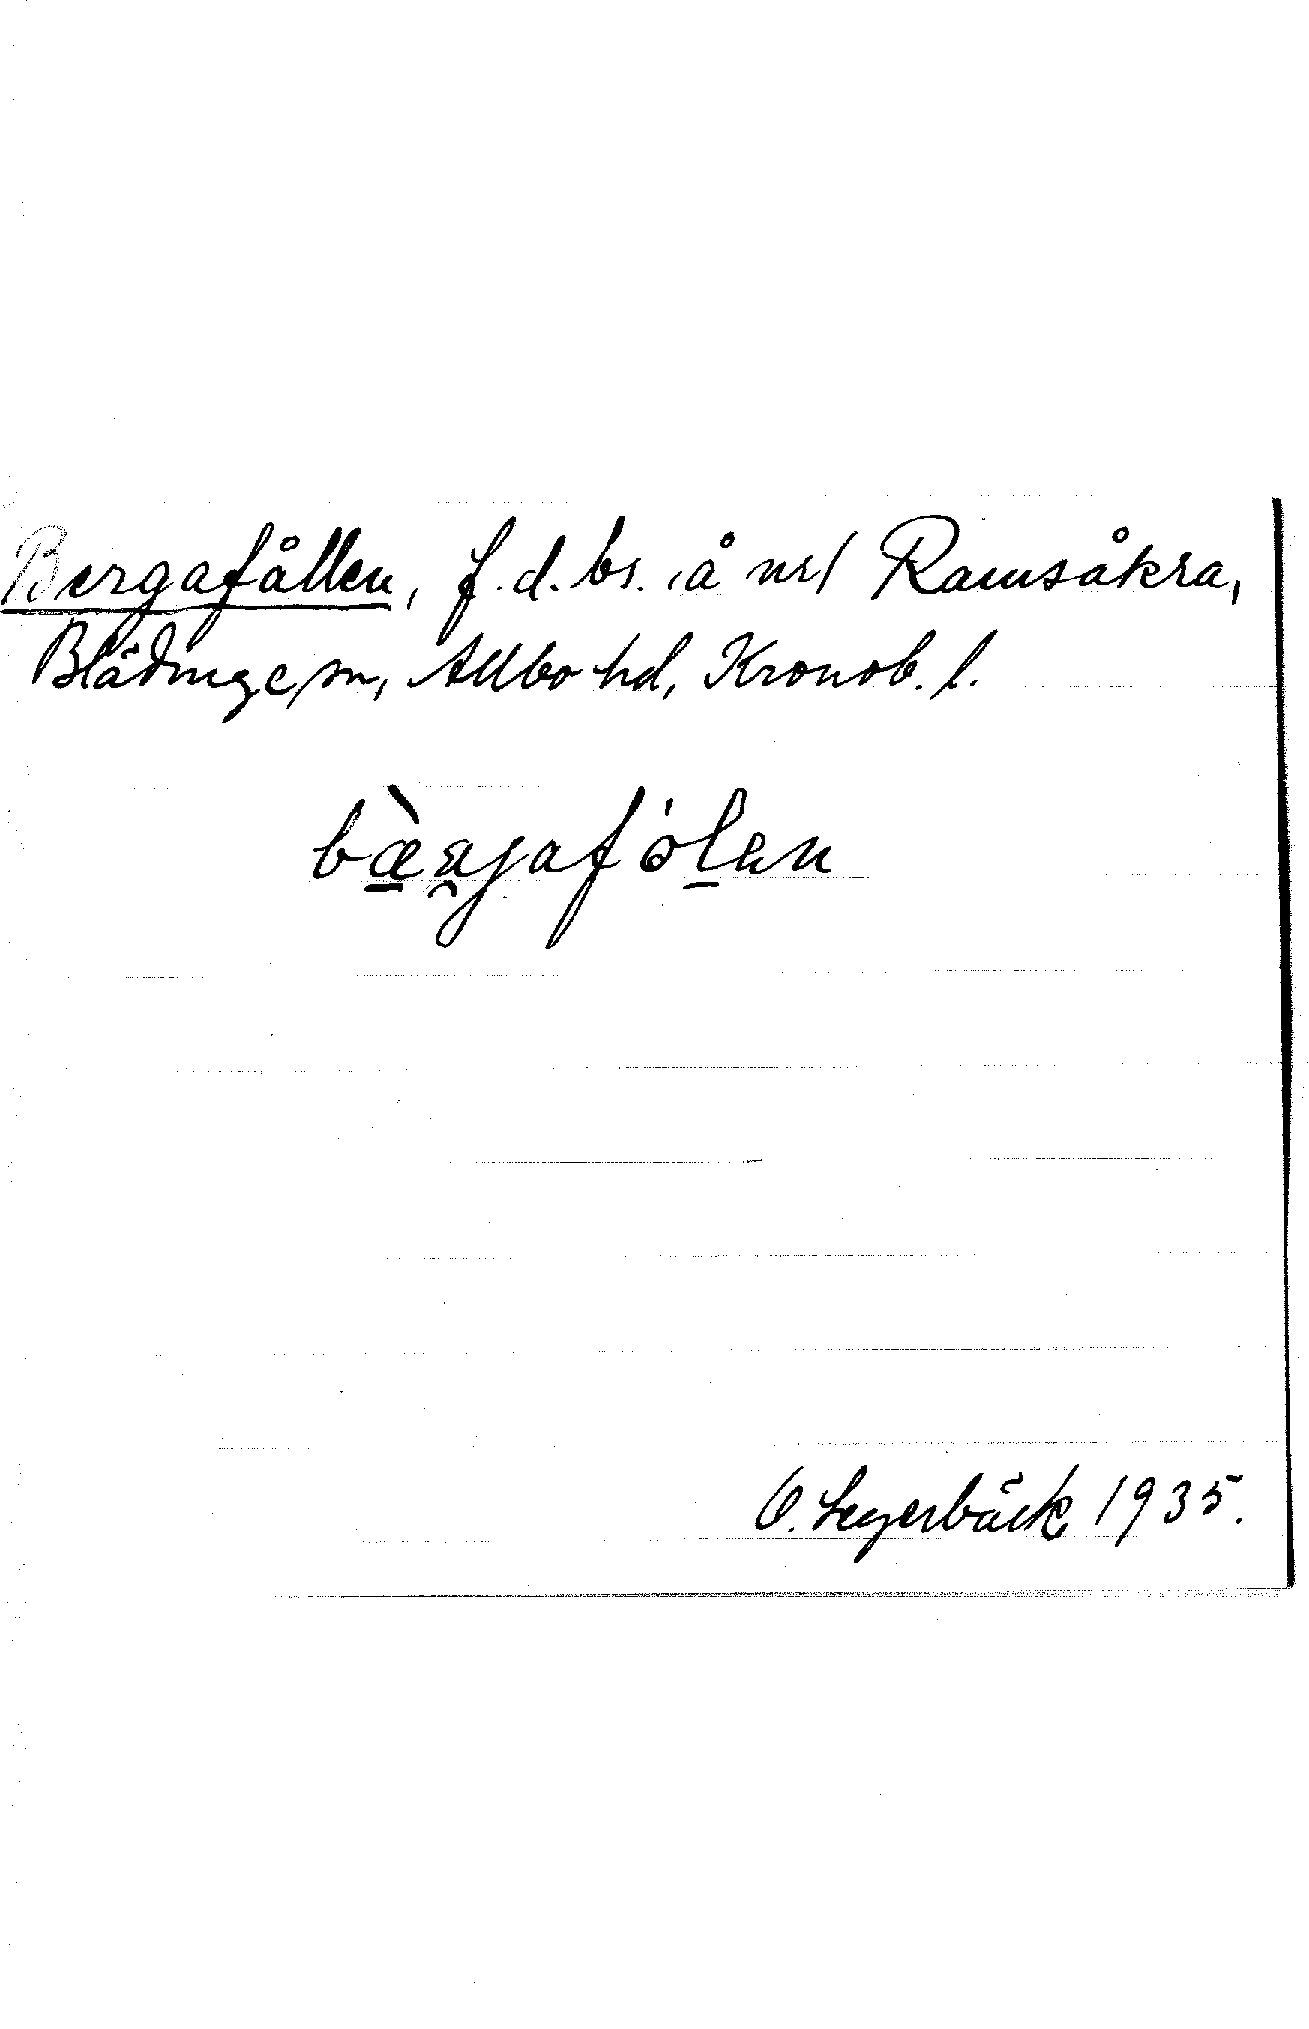 Bergafållen, f.d. bs. å nr 1 Ramsåkra,
Blädinge sn, Allbo hd, Kronob. l.
O. Segerbäck 1935.